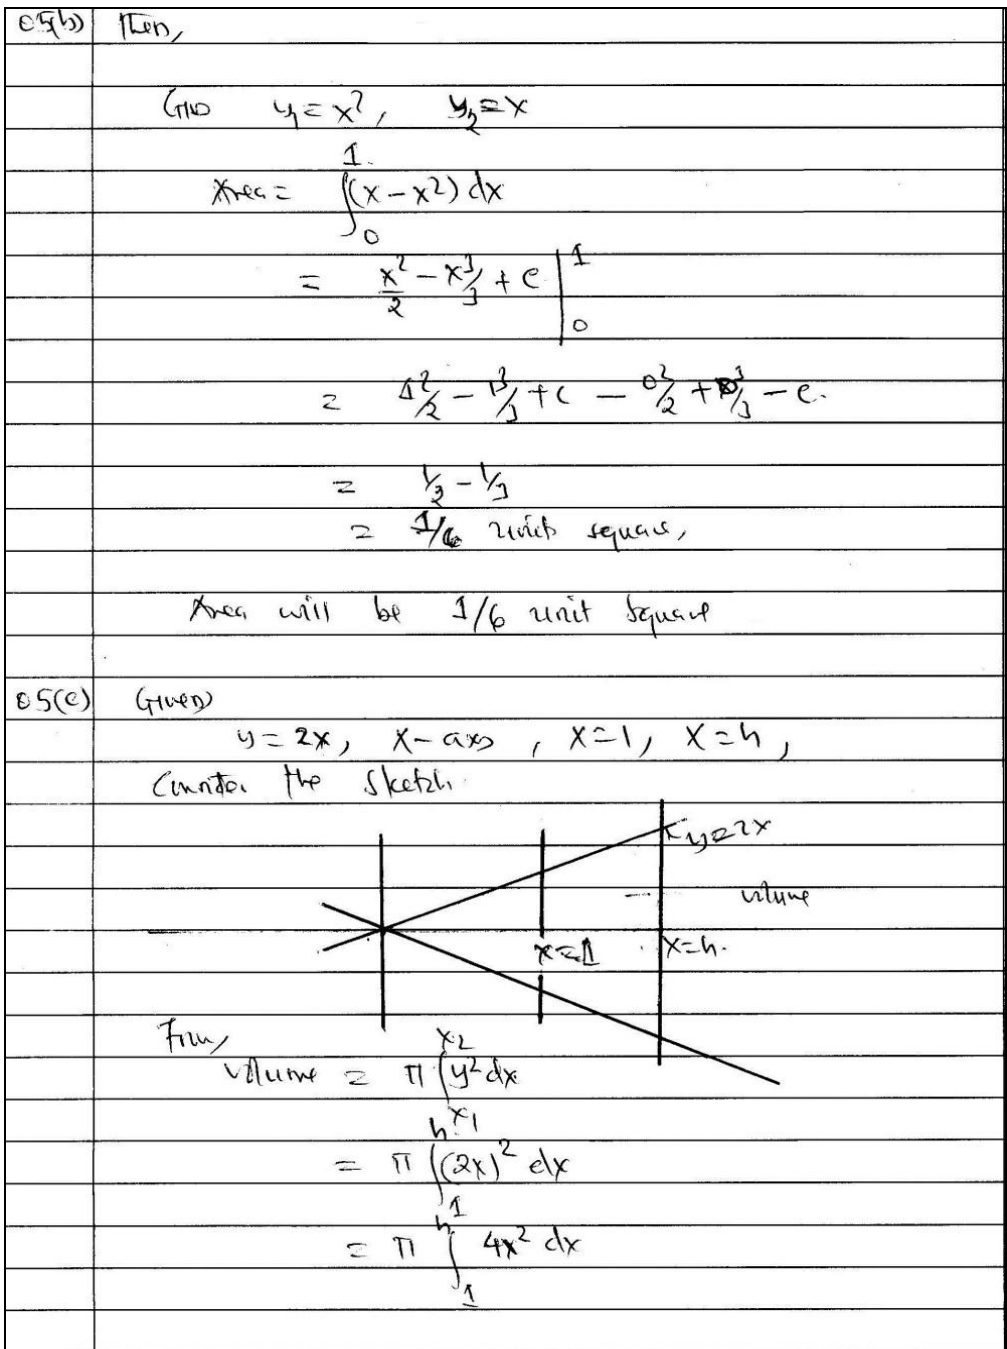 05(b) Then,
Given y₁ = x², y₂ = x
Area = ∫₀¹ (x - x²) dx
= x²/2 - x³/3 + c |₀¹
= 1²/2 - 1³/3 + c - 0²/2 + 0³/3 - c.
= 1/2 - 1/3
= 1/6 unit square,
Area will be 1/6 unit square
05(c) Given
y = 2x, x-axis, x=1, x=h,
Consider the sketch
y=2x
volume
x=1 x=h.
From,
Volume = π ∫ₓ₁ˣ² y² dx
= π ∫₁ʰ (2x)² dx
= π ∫₁ʰ 4x² dx